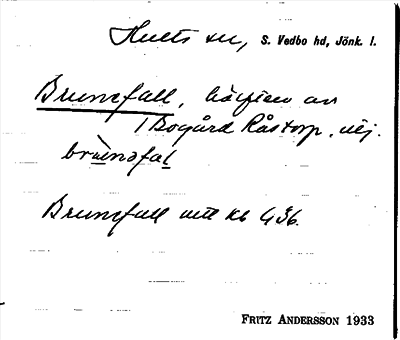 Hults sn, S. Vedbo hd, Jönk. l.
Brunsfall, hälften av
1 Bogård Råstorp, nej.
brùnsfal
Brunsfall utt kb 436.
FRITZ ANDERSSON 1933